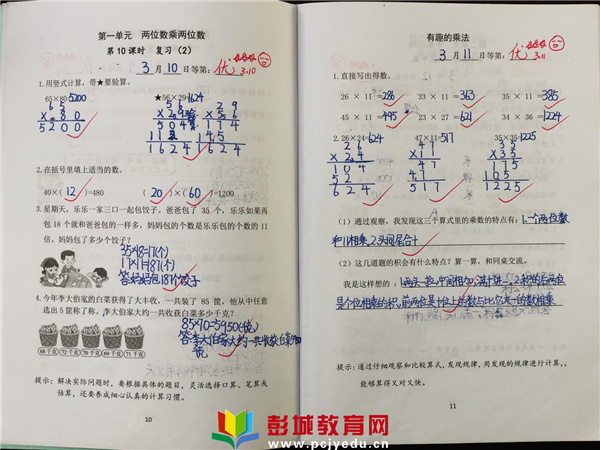 第一单元 两位数乘两位数
第 10 课时 复习（2）
3 月 10 日等第： 优 3.10
1.用竖式计算，带★要验算。
65×80 5200 ★56×29 1624
65 56 29
×80 ×29 ×56
5200 504 174
112 145
1624 1624
2.在括号里填上适当的数。
40×( 12 )=480 ( 20 )×( 60 )=1200
3.星期天，乐乐一家三口一起包饺子，爸爸包了 35 个，乐乐如果再
包 18 个就和爸爸包的一样多，妈妈包的个数是乐乐包的个数的 11
倍。妈妈包了多少个饺子？
35-18=17(个)
17×11=187(个)
答:妈妈包187个饺子
4.今年李大伯家的白菜获得了大丰收，一共装了 85 筐，他从中任意
选出 5 筐称了称。李大伯家大约一共收获白菜多少千克？
85×70=5950(千克)
68 千克 72 千克 70 千克 69 千克 71 千克
提示：解决实际问题时，要根据具体的题目，灵活选择口算、笔算或
估算，还要养成细心认真的计算习惯。
10
有趣的乘法
3 月 11 日等第： 优 3.11
1.直接写出得数。
26 × 11 = 286 33 × 11 = 363 35 × 11 = 385
45 × 11 = 495 23 × 27 = 621 34 × 36 = 1224
2.26×24 624 47×11 517 35×35 1225
26 47 35
×24 ×11 ×35
104 47 175
52 47 105
624 517 1225
（1）通过观察，我发现这三个算式里的乘数的特点有：1.一个两位数
和11相乘。2.头同尾合十
（2）这几道题的积会有什么特点？算一算，和同桌交流。
我是这样想的：1.两头一拉，中间相加，满十进一。2.积的后两位
是个位相乘的积，前两位是十位上的数与比它大一的数相乘
提示：通过仔细观察和比较算式，发现规律，用发现的规律进行计算，
能够算得又对又快。
11
彭城教育网
www.pcjyedu.cn